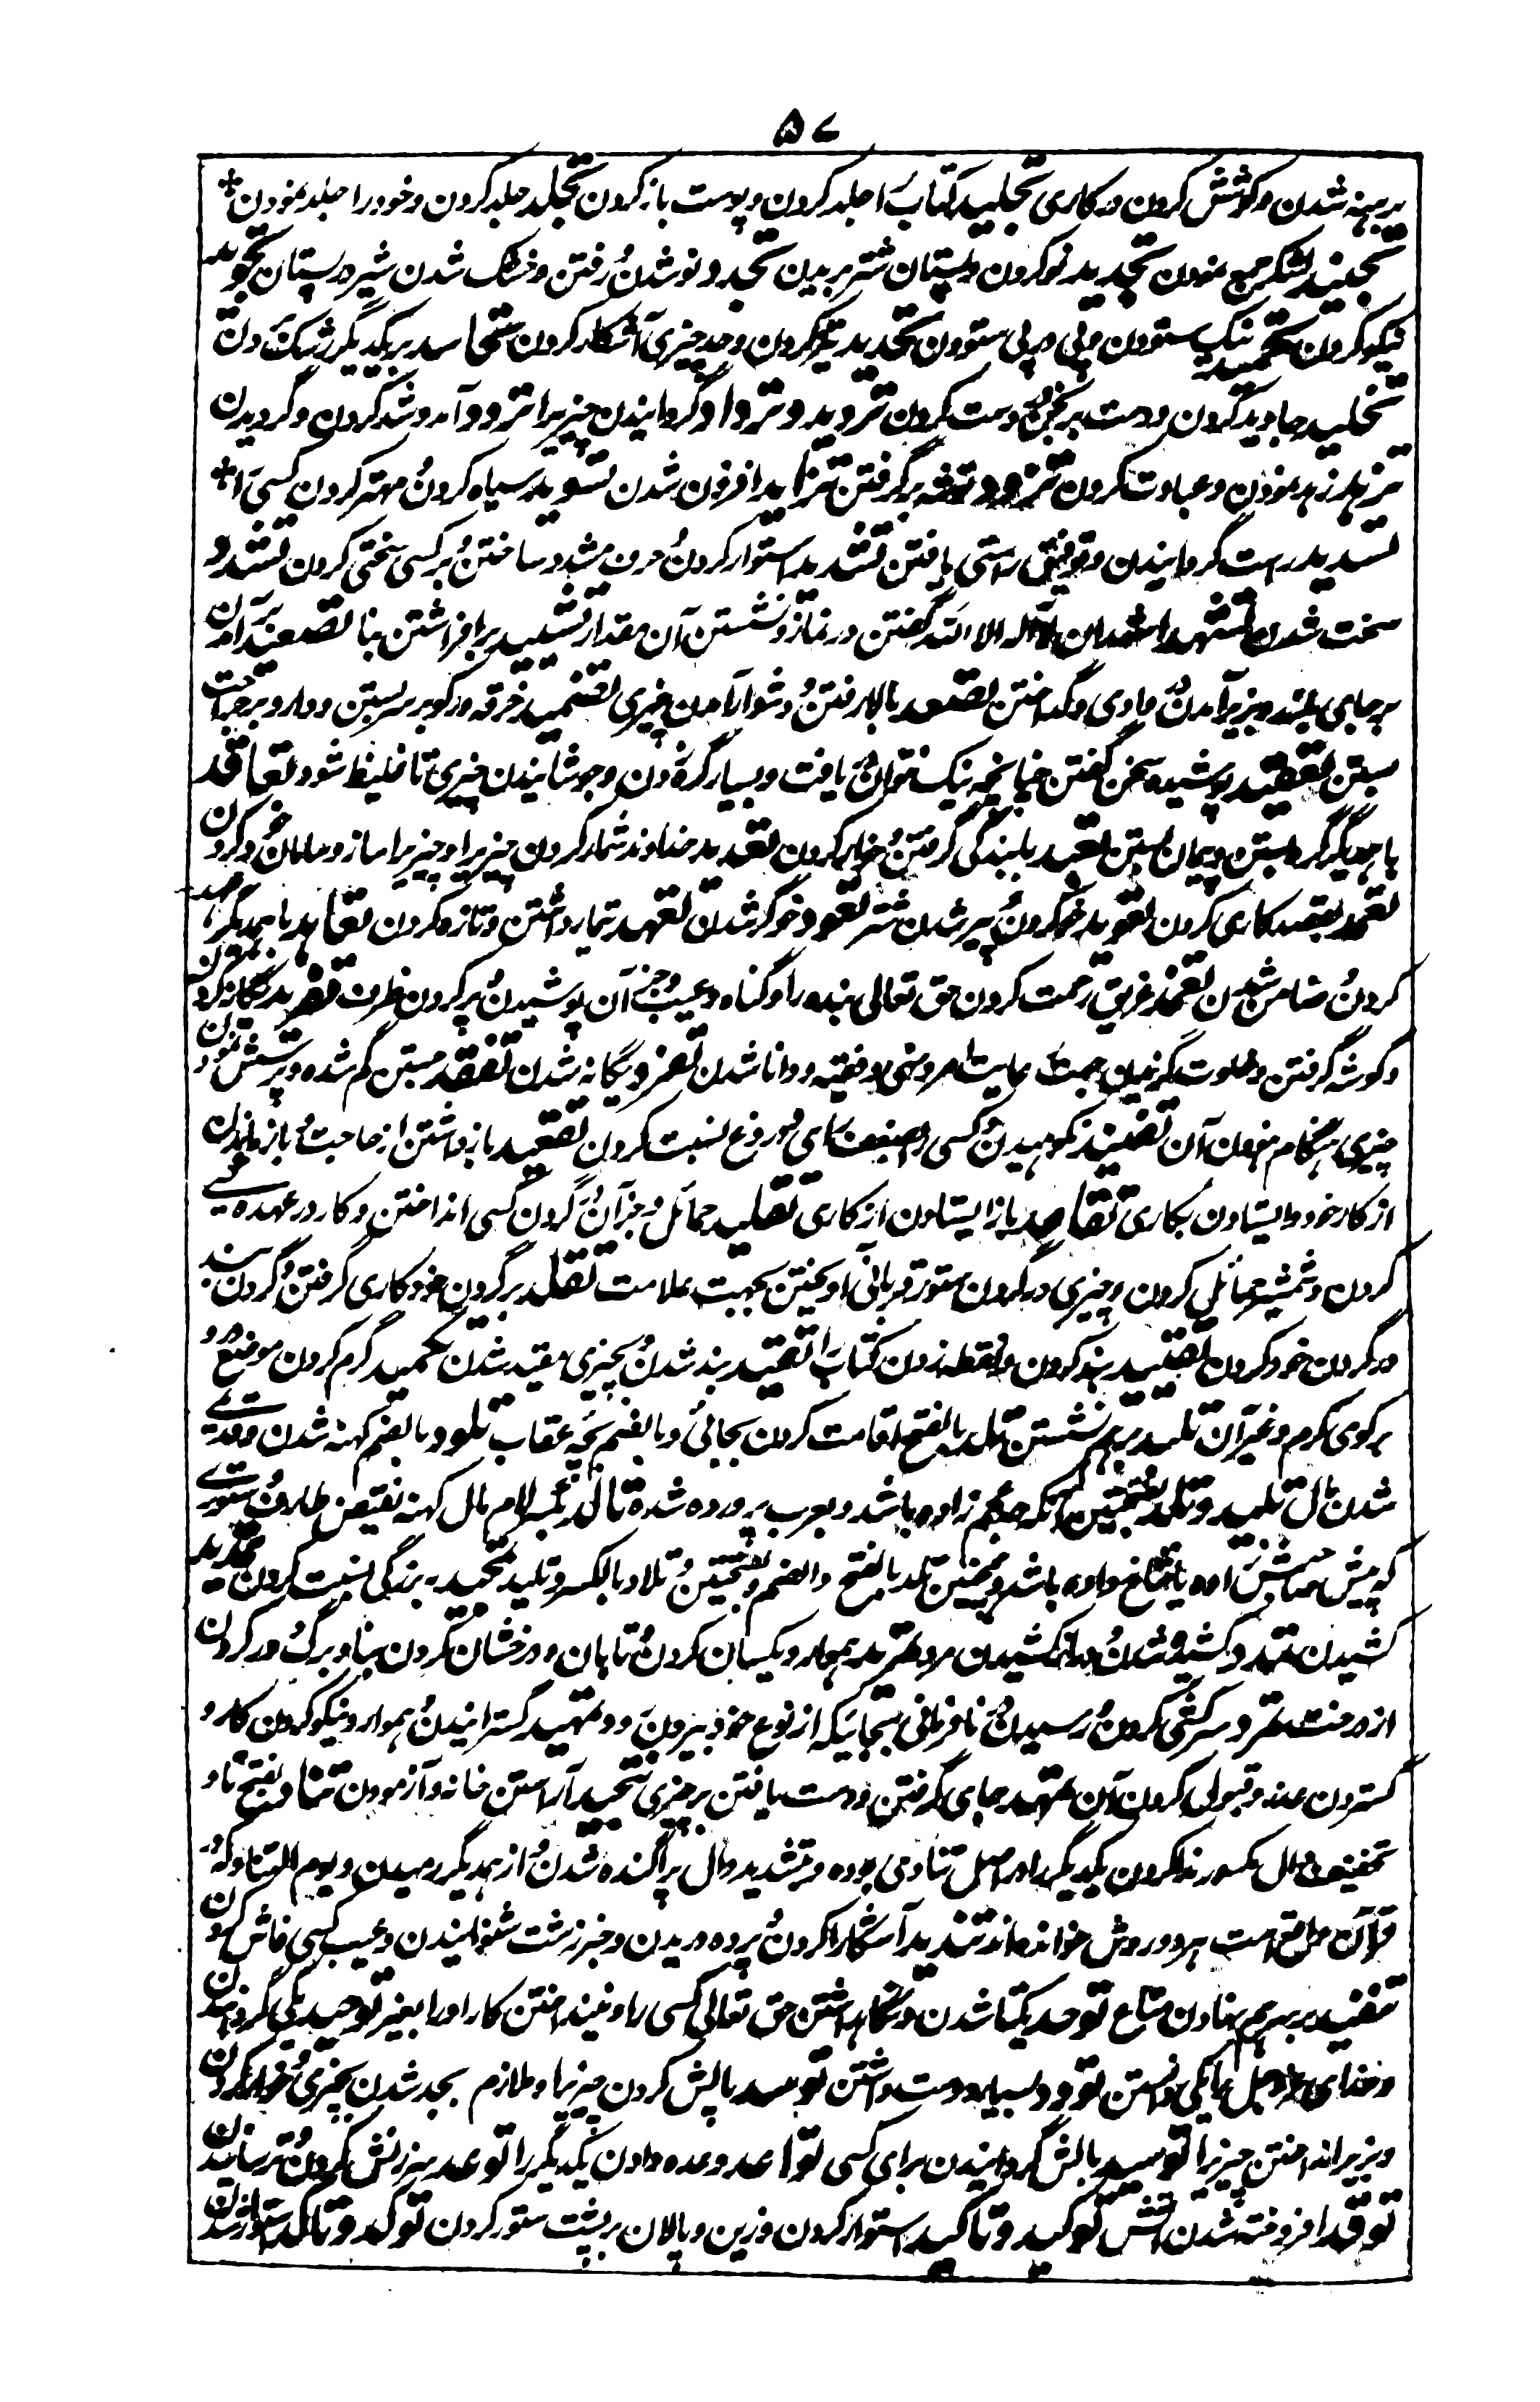 ۵۷
برهنه شدن و کوشش کردن در کاری تجلید کتاب را جلد کردن و پوست باز کردن تجلد جلد کردن و خود را جلد نمودن
تجنید لشکر جمع نمودن تجدید نو کردن و پستان شتر بریدن تجدد نو شدن و رفتن و خشک شدن شیر در پستان تجوید
نیکو کردن تحمید نیک ستودن و پی در پی ستودن تحدید تیز کردن و حد چیزی آشکار کردن تحاسد بر یکدیگر رشک بردن
تخلید جاوید کردن و دست برنجن در دست کردن تردید و ترداد گردانیدن چیزیرا تردد آمد و شد کردن و گردیدن
تزهد زهد نمودن و عبادت کردن تزود توشه برگرفتن تزاید افزون شدن تسوید سیاه کردن و مهتر کردن کسی را
تسدید راست گردانیدن و توفیق راستی یافتن تشدید استوار کردن و حرف مشدد ساختن و بر کسی سختی کردن تشدد
سخت شدن تشهد اشهد ان لا اله الا الله گفتن در نماز و نشستن آن مقدار تشیید برافراشتن بنا تصعید برآمدن
بر جای بلند و بزیر آمدن در وادی و گداختن تصعد بالا رفتن و دشوار آمدن چیزی تضمید خرقه و رکو بر سر بستن و دارو بر جراحت
بستن تعقید پوشیده سخن گفتن چنانچه نیک نتوان یافت و بسیار گره زدن و جوشانیدن چیزی تا غلیظ شود تعاقد
با یکدیگر گره بستن و پیمان بستن تعبید ببندگی گرفتن و خوار کردن تعدید خداوند شمار کردن چیزیرا و چیزیرا ساز و سامان خود کردن
تعمد بقصد کاری کردن تعوید خوگر کردن و پیر شدن شتر تعود خوگر شدن تعهد تیمار داشتن و تازه کردن تعاهد با همدیگر عهد
کردن و ضامن شدن تغمد غریق رحمت کردن حق تعالی بنده را و گناه و عیب و جز آن پوشیدن و پر کردن ظرف تفرید یگانه کردن
و گوشه گرفتن و خلوت گزیدن بجهت رعایت امر و نهی و فقیه و دانا شدن تفرد یگانه شدن تفقد جستن گم شده و پرسش نمودن
چیزی هنگام نبودن آن تفنید نکوهیدن کسی و بضعف رای و دروغ نسبت کردن تقعید باز داشتن از حاجت و باز ماندن
از کار خود و ایستادن بکاری تقاعد باز ایستادن از کاری تقلید حمائل و جز آن در گردن کسی انداختن و کار در عهده کسی
کردن و شمشیر حمائل کردن و چیزی در گردن ستور قربانی آویختن بجهت علامت تقلد بر گردن خود کاری گرفتن و گردن بند
در گردن خود کردن تقیید بند کردن و نقطه زدن کتاب را تقید بند شدن و بچیزی مقید شدن تکمید گرم کردن موضع درد
برکوی گرم و غیر آن تلبید برهم نشستن تلد بالفتح اقامت کردن بجائی و بالضم بچه عقاب تلود بالضم کهنه شدن و قدیمی
شدن مال تلید و تلد بفتحتین آنکه بعجم زاده باشد و بعرب پرورده شده تالد بکسر لام مال کهنه نقیض طارف و ستوری
که پیش صاحبش زاده یا نتاج داده باشد و همچنین تلد بالفتح و الضم و بفتحتین و تلاد بالکسر و تلید تمجید به بزرگی نسبت کردن تمدید
کشیدن تمدد کشیده شدن و دراز کشیدن مرد تمرید هموار و یکسان کردن و تابان و درخشان کردن بنا و برگ دور کردن
از درخت تمرد سرکشی کردن و رسیدن و نافرمانی بجائیکه از نوع خود بیرون رود تمهید گسترانیدن و هموار و نیکو کردن کار و
گستردن عذر و قبول کردن آن تمهد جای گرفتن و دست یافتن بر چیزی تنجید آراستن خانه و آزمودن تناد بفتح تا و
تخفیف دال مکسور ندا کردن یکدیگر را در اصل تنادی بوده و بتشدید دال پراگنده شدن و از همدیگر رمیدن و یوم التناد که در
قرآن واقع است بهر دو روش خوانده‌اند تندید آشکارا کردن و پرده دریدن و خبر زشت شنوانیدن و عیب کسی فاش کردن
تنضید بر سر هم نهادن متاع توحد یکتا شدن و نگاه داشتن حق تعالی کسی را و نینداختن کار او را بغیر توحید یکی گردانیدن
و خدای عز و جل را یکی دانستن تودد بسیار دوست داشتن توسد بالش کردن چیزیرا و ملازم بجد شدن بچیزی و خوار کردن
و بزیر انداختن چیزیرا توسید بالش گردانیدن برای کسی تواعد وعده دادن یکدیگر را توعد سرزنش کردن و ترسانیدن
توقد افروخته شدن آتش توکید و تاکید استوار کردن و زین و پالان بر پشت ستور کردن توکد و تاکد استوار شدن